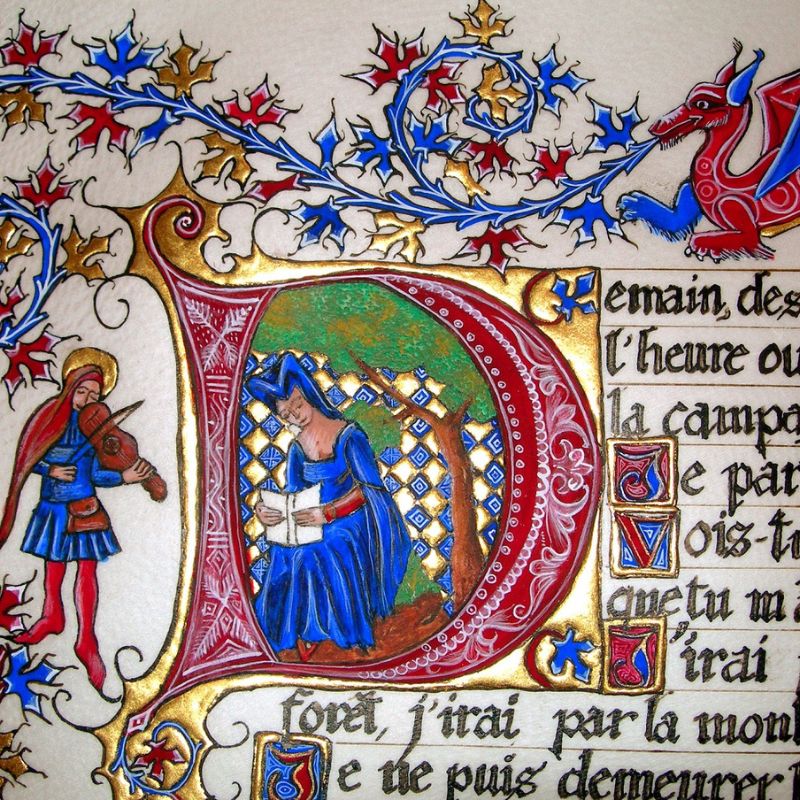 Demain, des
l'heure ou
la campa
Je par
Vois-tu
que tu m
J'irai
forêt, j'irai par la mon
Je ne puis demeurer l